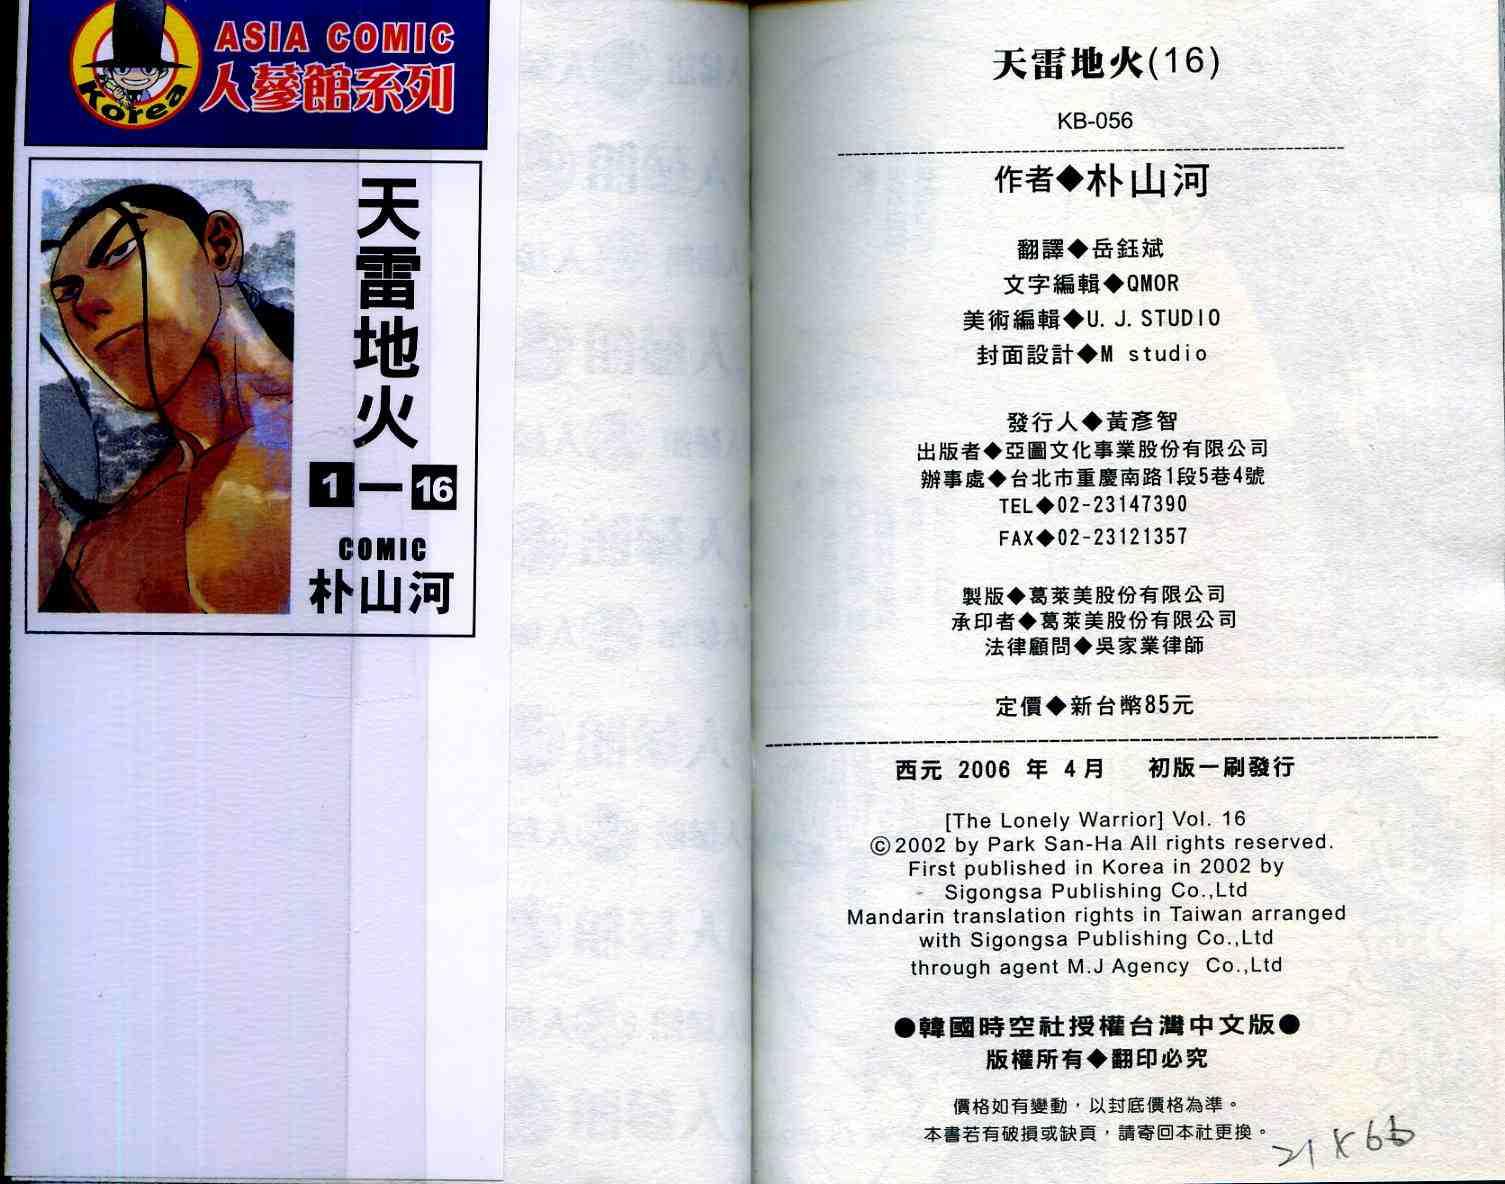 ASIA COMIC
人蔘館系列
Korea
天雷地火
1—16
COMIC
朴山河
天雷地火(16)
KB-056
作者◆朴山河
翻譯◆岳鈺斌
文字編輯◆QMOR
美術編輯◆U.J.STUDIO
封面設計◆M studio
發行人◆黃彥智
出版者◆亞圖文化事業股份有限公司
辦事處◆台北市重慶南路1段5巷4號
TEL◆02-23147390
FAX◆02-23121357
製版◆葛萊美股份有限公司
承印者◆葛萊美股份有限公司
法律顧問◆吳家業律師
定價◆新台幣85元
西元 2006 年 4月 初版一刷發行
[The Lonely Warrior] Vol. 16
©2002 by Park San-Ha All rights reserved.
First published in Korea in 2002 by
Sigongsa Publishing Co.,Ltd
Mandarin translation rights in Taiwan arranged
with Sigongsa Publishing Co.,Ltd
through agent M.J Agency Co.,Ltd
●韓國時空社授權台灣中文版●
版權所有◆翻印必究
價格如有變動，以封底價格為準。
本書若有破損或缺頁，請寄回本社更換。